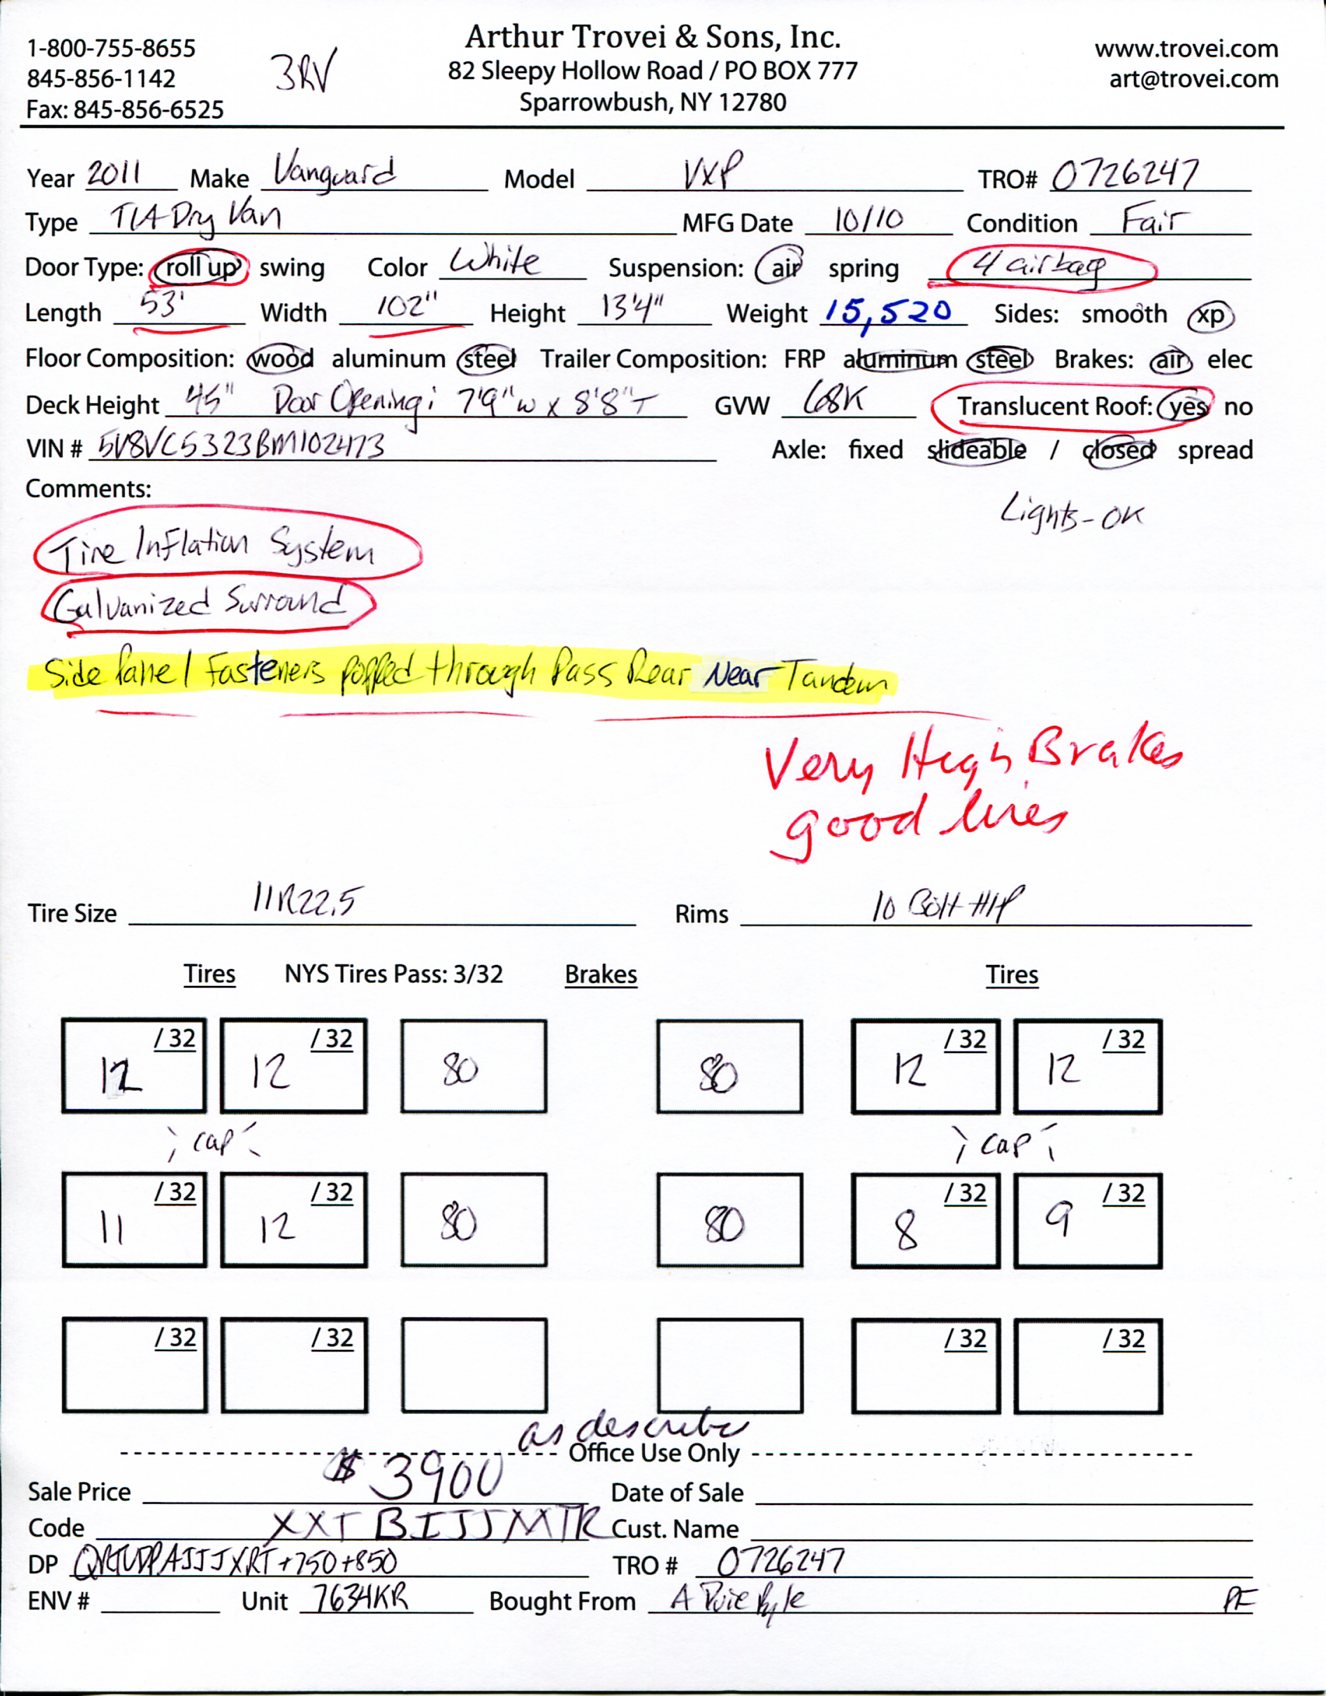 Arthur Trovei & Sons, Inc.
1-800-755-8655 82 Sleepy Hollow Road / PO BOX 777 www.trovei.com
845-856-1142 3RV Sparrowbush, NY 12780 art@trovei.com
Fax: 845-856-6525
Year 2011 Make Vanguard Model VXP TRO# 0726247
Type T/A Dry Van MFG Date 10/10 Condition Fair
Door Type: roll up swing Color White Suspension: air spring 4 airbag
Length 53' Width 102" Height 13'4" Weight 15,520 Sides: smooth xp
Floor Composition: wood aluminum steel Trailer Composition: FRP aluminum steel Brakes: air elec
Deck Height 45" Door Opening: 7'9"w x 8'8"T GVW 68K Translucent Roof: yes no
VIN # 5V8VC5323BM102473 Axle: fixed slideable / closed spread
Comments:
Lights-OK
Tire Inflation System
Galvanized Surround
Side Panel Fasteners popped through Pass Rear Near Tandem
Very High Brakes
good tires
Tire Size 11R22.5 Rims 10 Bolt H/P
Tires NYS Tires Pass: 3/32 Brakes Tires
12 /32 12 /32 80 80 12 /32 12 /32
cap cap
11 /32 12 /32 80 80 8 /32 9 /32
/32 /32 /32 /32
as describe
Office Use Only
Sale Price $3900 Date of Sale
Code XXT BIJJMTR Cust. Name
DP +750+850 TRO # 0726247
ENV # Unit 7634KR Bought From A PE